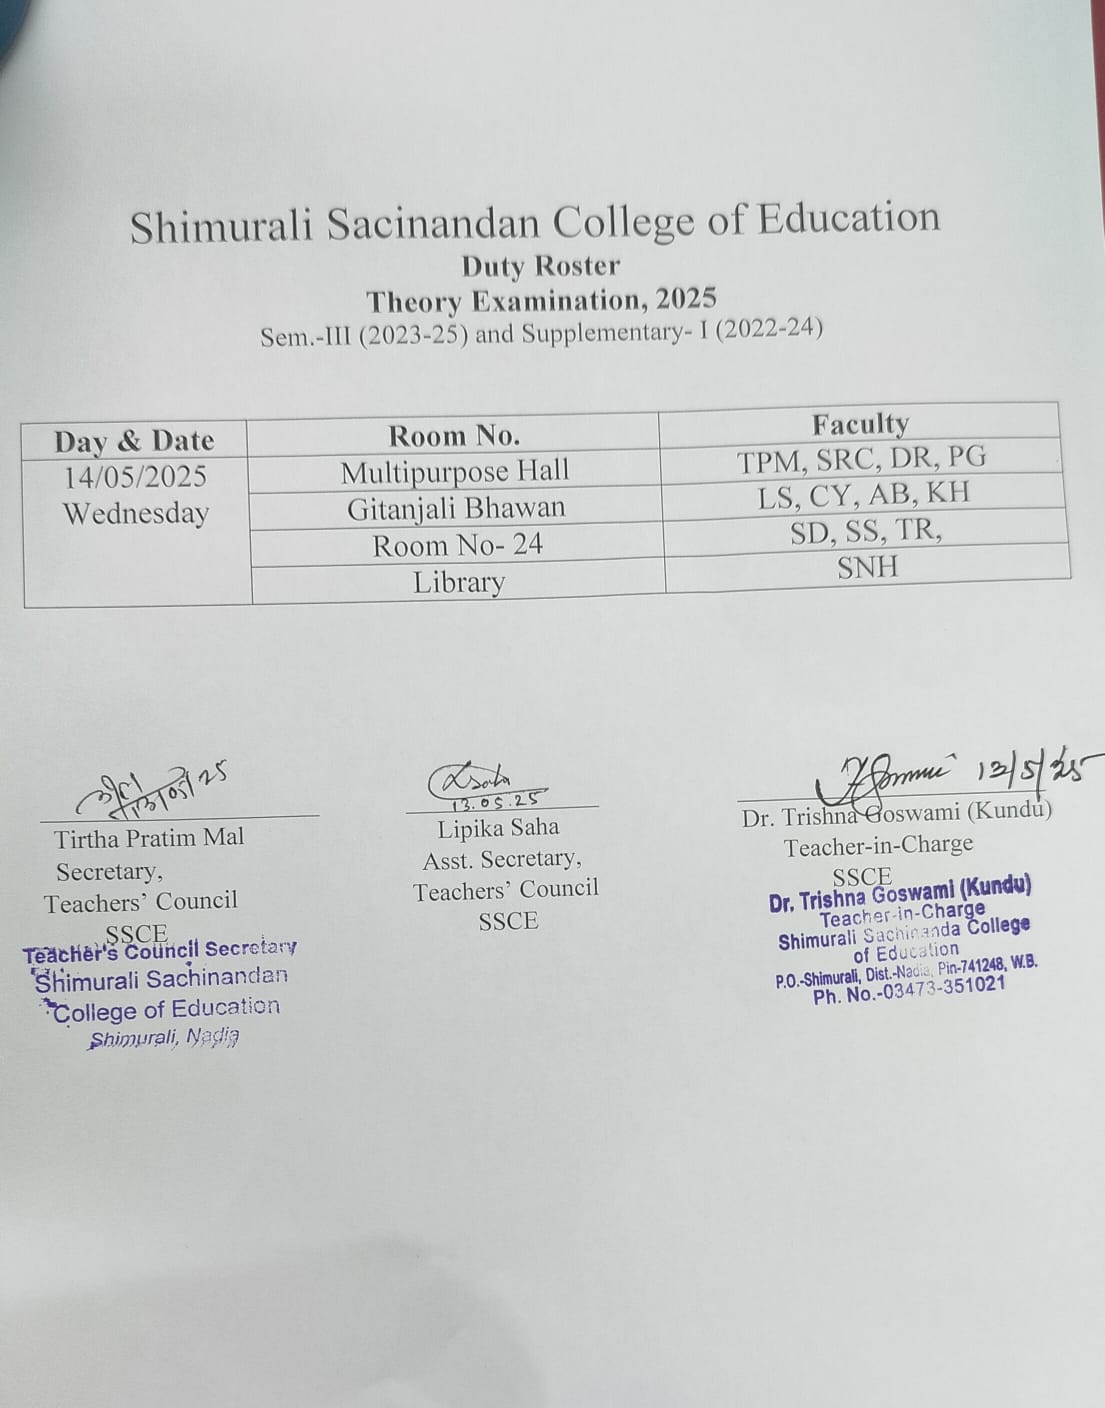 Shimurali Sacinandan College of Education
Duty Roster
Theory Examination, 2025
Sem.-III (2023-25) and Supplementary- I (2022-24)
Day & Date Room No. Faculty
14/05/2025 Multipurpose Hall TPM, SRC, DR, PG
Wednesday Gitanjali Bhawan LS, CY, AB, KH
Room No- 24 SD, SS, TR,
Library SNH
13/05/25
Tirtha Pratim Mal
Secretary,
Teachers' Council
SSCE
Teacher's Council Secretary
Shimurali Sachinandan
College of Education
Shimurali, Nadia
LSaha
13.05.25
Lipika Saha
Asst. Secretary,
Teachers' Council
SSCE
13/5/25
Dr. Trishna Goswami (Kundu)
Teacher-in-Charge
SSCE
Dr. Trishna Goswami (Kundu)
Teacher-in-Charge
Shimurali Sachinanda College
of Education
P.O.-Shimurali, Dist.-Nadia, Pin-741248, W.B.
Ph. No.-03473-351021